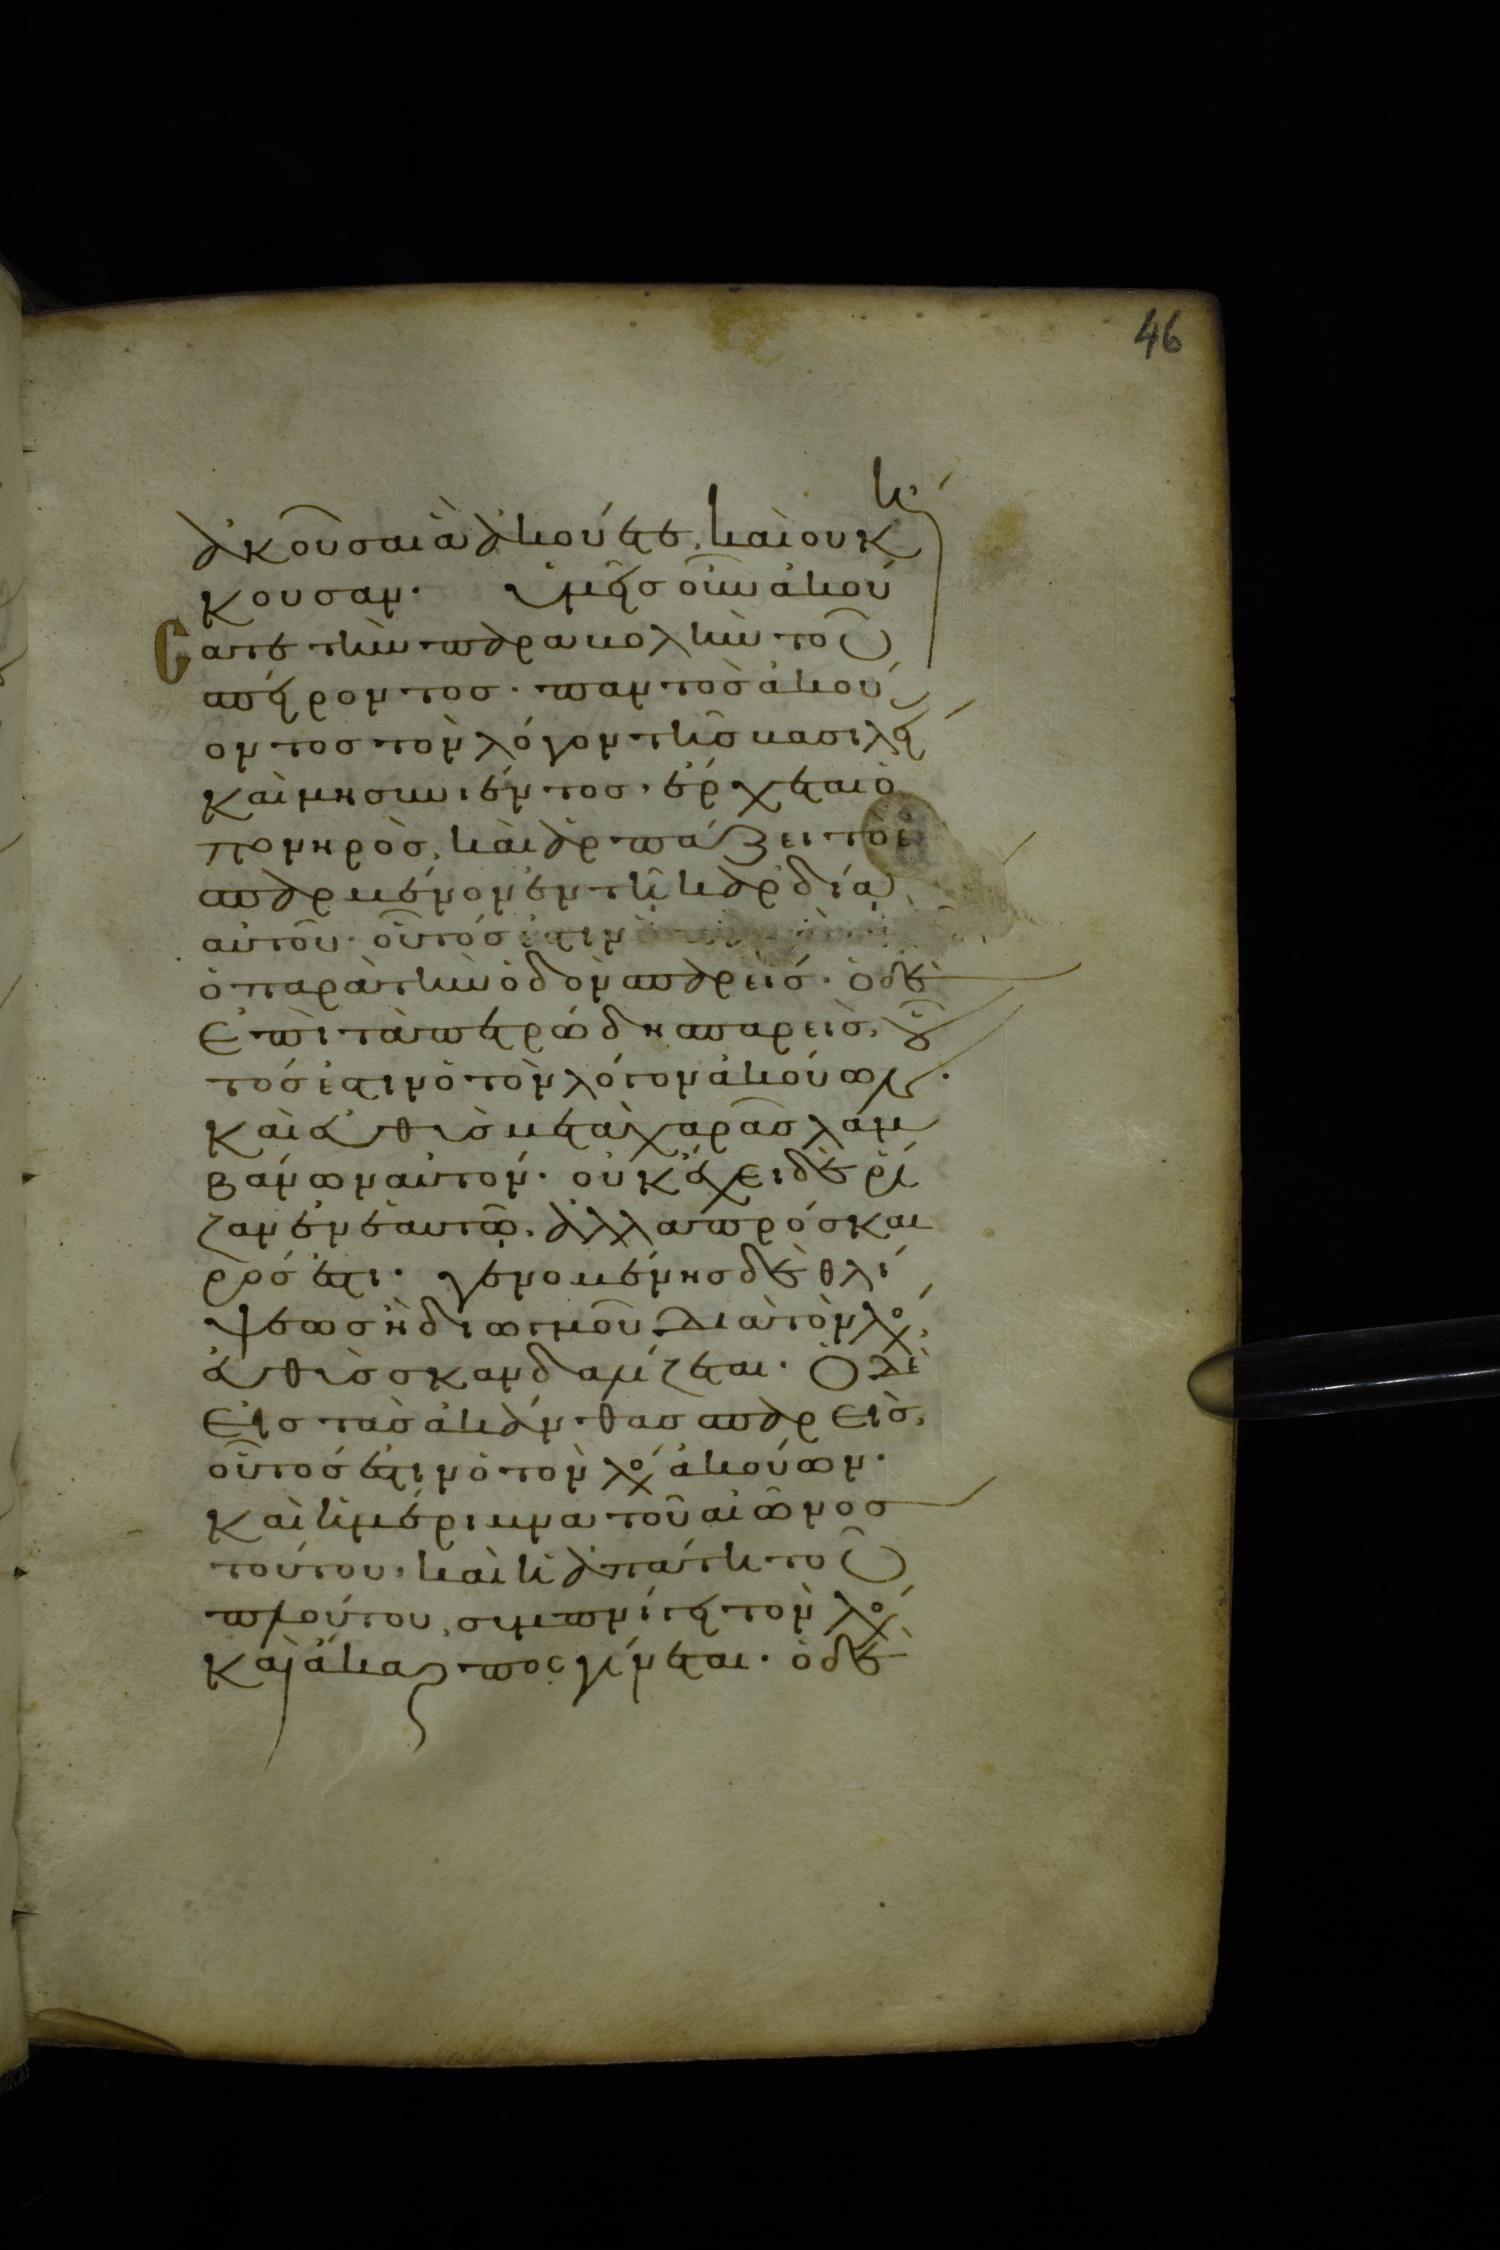 46
ἀκοῦσαι ἃ ἀκούετε, καὶ οὐκ ἤ
κουσαν. ὑμεῖς οὖν ἀκού
σατε τὴν παραβολὴν τοῦ
σπείροντος. παντὸς ἀκού
οντος τὸν λόγον τῆς βασιλεί
καὶ μὴ συνιέντος, ἔρχεται ὁ
πονηρὸς, καὶ ἁρπάζει τὸ ἐ
σπαρμένον ἐν τῆ καρδία
αὐτοῦ. οὗτός ἐστιν
ὁ παρὰ τὴν ὁδὸν σπαρείς. ὁ δὲ
ἐπὶ τὰ πετρώδη σπαρεὶς, οὗ
τός ἐστιν ὁ τὸν λόγον ἀκούων.
καὶ εὐθὺς μετὰ χαρᾶς λαμ
βάνων αὐτόν. οὐκ ἔχει δὲ ῥί
ζαν ἐν ἑαυτῷ. ἀλλα πρόσκαι
ρός ἐστι. γενομένης δὲ θλί
ψεως ἢ διωγμοῦ διὰ τὸν λό
εὐθὺς σκανδαλίζεται. ὁ δὲ
εἰς τὰς ἀκάνθας σπαρεὶς,
οὗτός ἐστιν ὁ τὸν λό ἀκούων.
καὶ ἡ μέριμνα τοῦ αἰῶνος
τούτου, καὶ ἡ ἀπάτη τοῦ
πλούτου, συμπνίγει τὸν λό
καὶ ἄκαρπος γίνεται. ὁ δὲ